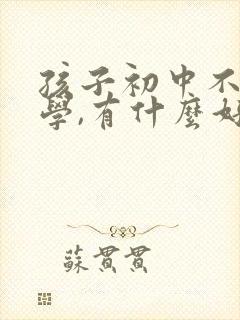 孩子初中不
學,有什麼好
蘇貫貫